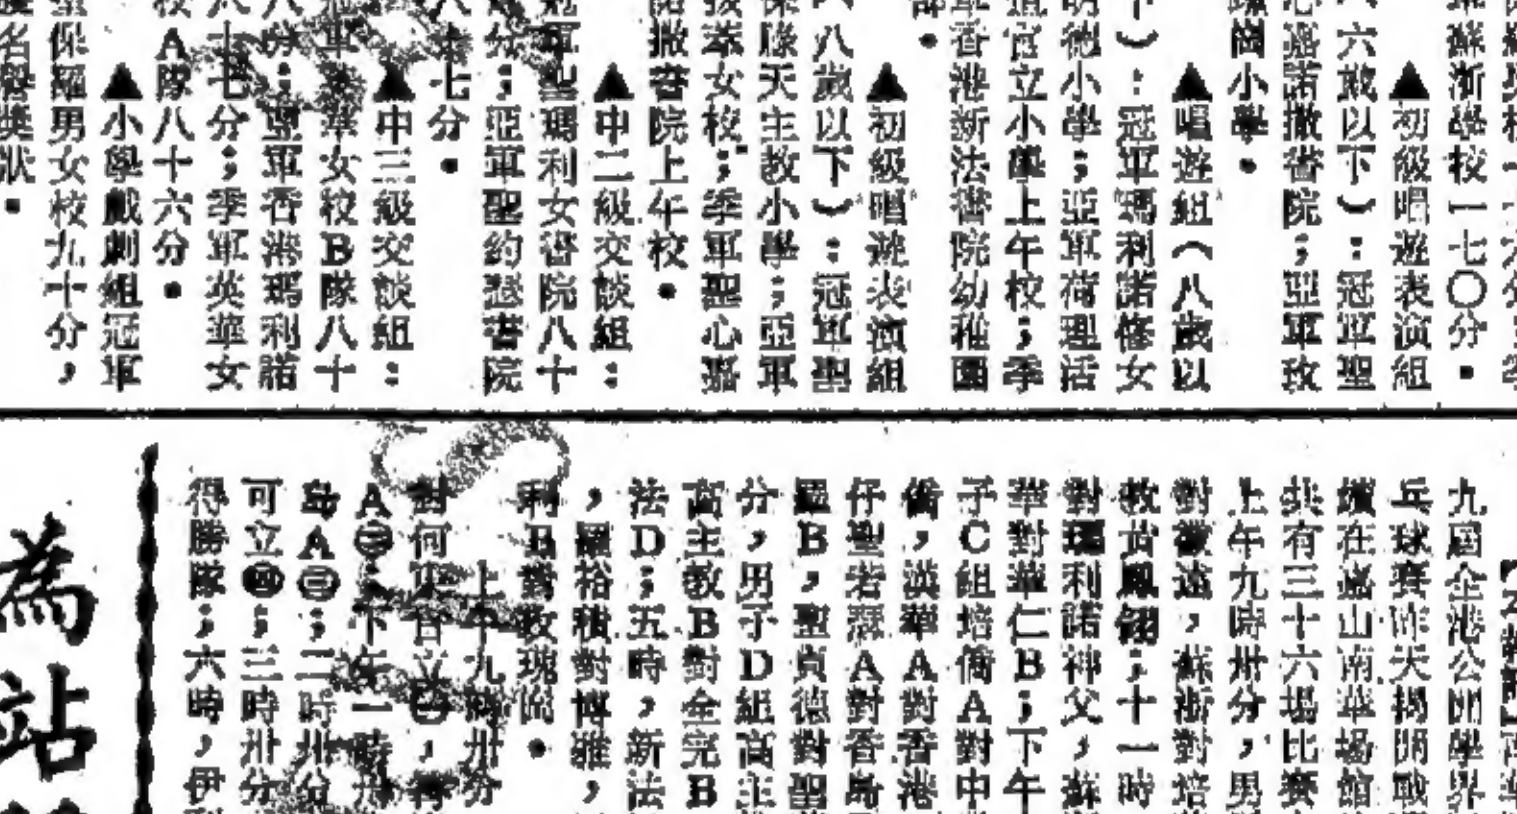 華蘇浙學校一七〇分。
▲初級唱遊表演組
六歲以下）：冠軍聖
心嘉諾撒書院；亞軍玫
瑰崗小學。
▲唱遊組（八歲以
下）：冠軍瑪利諾修女
明德小學；亞軍荷理活
道官立小學上午校；季
軍香港新法書院幼稚園
部。
▲初級唱遊表演組
八歲以下）：冠軍聖
保祿天主教小學；亞軍
拔萃女校；季軍聖心嘉
諾撒書院上午校。
▲中二級交談組：
冠軍聖瑪利女書院八十
分；亞軍聖約瑟書院
八十七分。
▲中三級交談組：
冠軍英華女校B隊八十
八分；亞軍香港瑪利諾
八十七分；季軍英華女
校A隊八十六分。
▲小學戲劇組冠軍
聖保羅男女校九十分，
名譽獎狀。
九屆全港公開學界
乓球賽昨天揭開戰
續在嘉山南華場館
共有三十六場比賽
上午九時卅分，男
對徽遠，蘇浙對培
教黃鳳翎；十一時
對瑪利諾神父，蘇
華對華仁B；下午
子C組培僑A對中
僑，漢華A對香港
仔聖若瑟A對香島
羅B，聖貞德對聖
分，男子D組高主
高主教B對金完B
法D；五時，新法
，羅裕積對博雅，
利B對玫瑰崗。
上午九時卅分
對何東官立㊀，
A㊁；下午一時卅
島A㊂；二時卅分
可立㊃；三時卅分
得勝隊；六時，伊利
為站